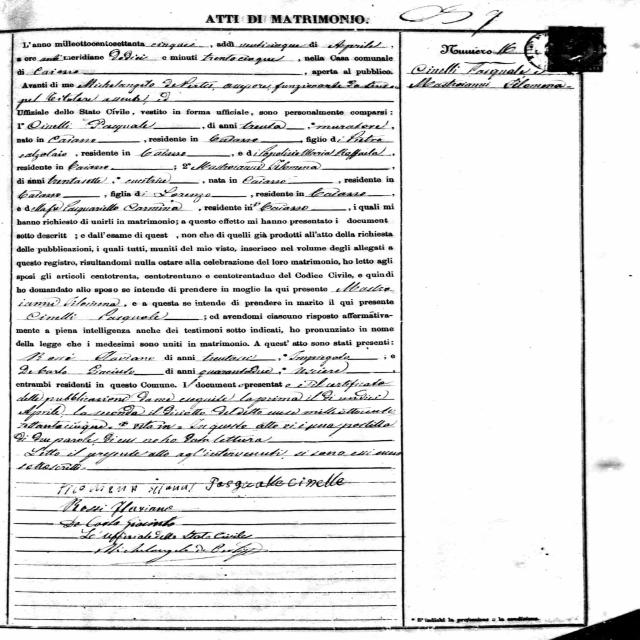 ATTI DI MATRIMONIO.
L'anno milleottocentosettanta cinque, addì venticinque di Aprile,
a ore meridiane dodici e minuti trentacinque, nella Casa comunale
di Caiazzo, aperta al pubblico.
Avanti di me Michelangelo de assessore funzionante da
pel titolare assente, ed
Uffiziale dello Stato Civile, vestito in forma ufficiale, sono personalmente comparsi:
1° Cinelli Pasquale, di anni trenta, muratore,
nato in Caiazzo, residente in Caiazzo, figlio di Pietro
calzolaio, residente in Caiazzo, e di Maria Raffaela
residente in Caiazzo; 2° Mastroianni Filomena,
di anni trentasette, nata in Caiazzo, residente in
Caiazzo, figlia di Lorenzo, residente in Caiazzo
e di Carmina, residente in Caiazzo, i quali mi
hanno richiesto di unirli in matrimonio; a questo effetto mi hanno presentato i document
sotto descritt ; e dall'esame di quest , non che di quelli già prodotti all'atto della richiesta
delle pubblicazioni, i quali tutti, muniti del mio visto, inserisco nel volume degli allegati a
questo registro, risultandomi nulla ostare alla celebrazione del loro matrimonio, ho letto agli
sposi gli articoli centotrenta, centotrentuno e centotrentadue del Codice Civile, e quindi
ho domandato allo sposo se intende di prendere in moglie la qui presente Mastro
ianni Filomena, e a questa se intende di prendere in marito il qui presente
Cinelli Pasquale; ed avendomi ciascuno risposto affermativamente
a piena intelligenza anche dei testimoni sotto indicati, ho pronunziato in nome
della legge che i medesimi sono uniti in matrimonio. A quest' atto sono stati presenti:
Rossi Flaviano di anni, impiegato; e
De Carlo Giacinto di anni quarantadue, usciere,
entrambi residenti in questo Comune. I document presentat è il certificato
delle pubblicazioni da me eseguite la prima il dì undici
Aprile, la seconda il diciotto del detto mese milleottocento
settantacinque. In questo atto vi è una postilla
di due parole, di cui ne ho data lettura
Letto il presente atto agl'intervenuti, si sono essi meco
sottoscritti
Filomena Pasquale Cinelle
Rossi Flaviano
De Carlo Giacinto
L'uffiziale dello Stato Civile
Michelangelo de
Numero
Cinelli Pasquale e
Mastroianni Filomena
* S'indichi la professione o la condizione.